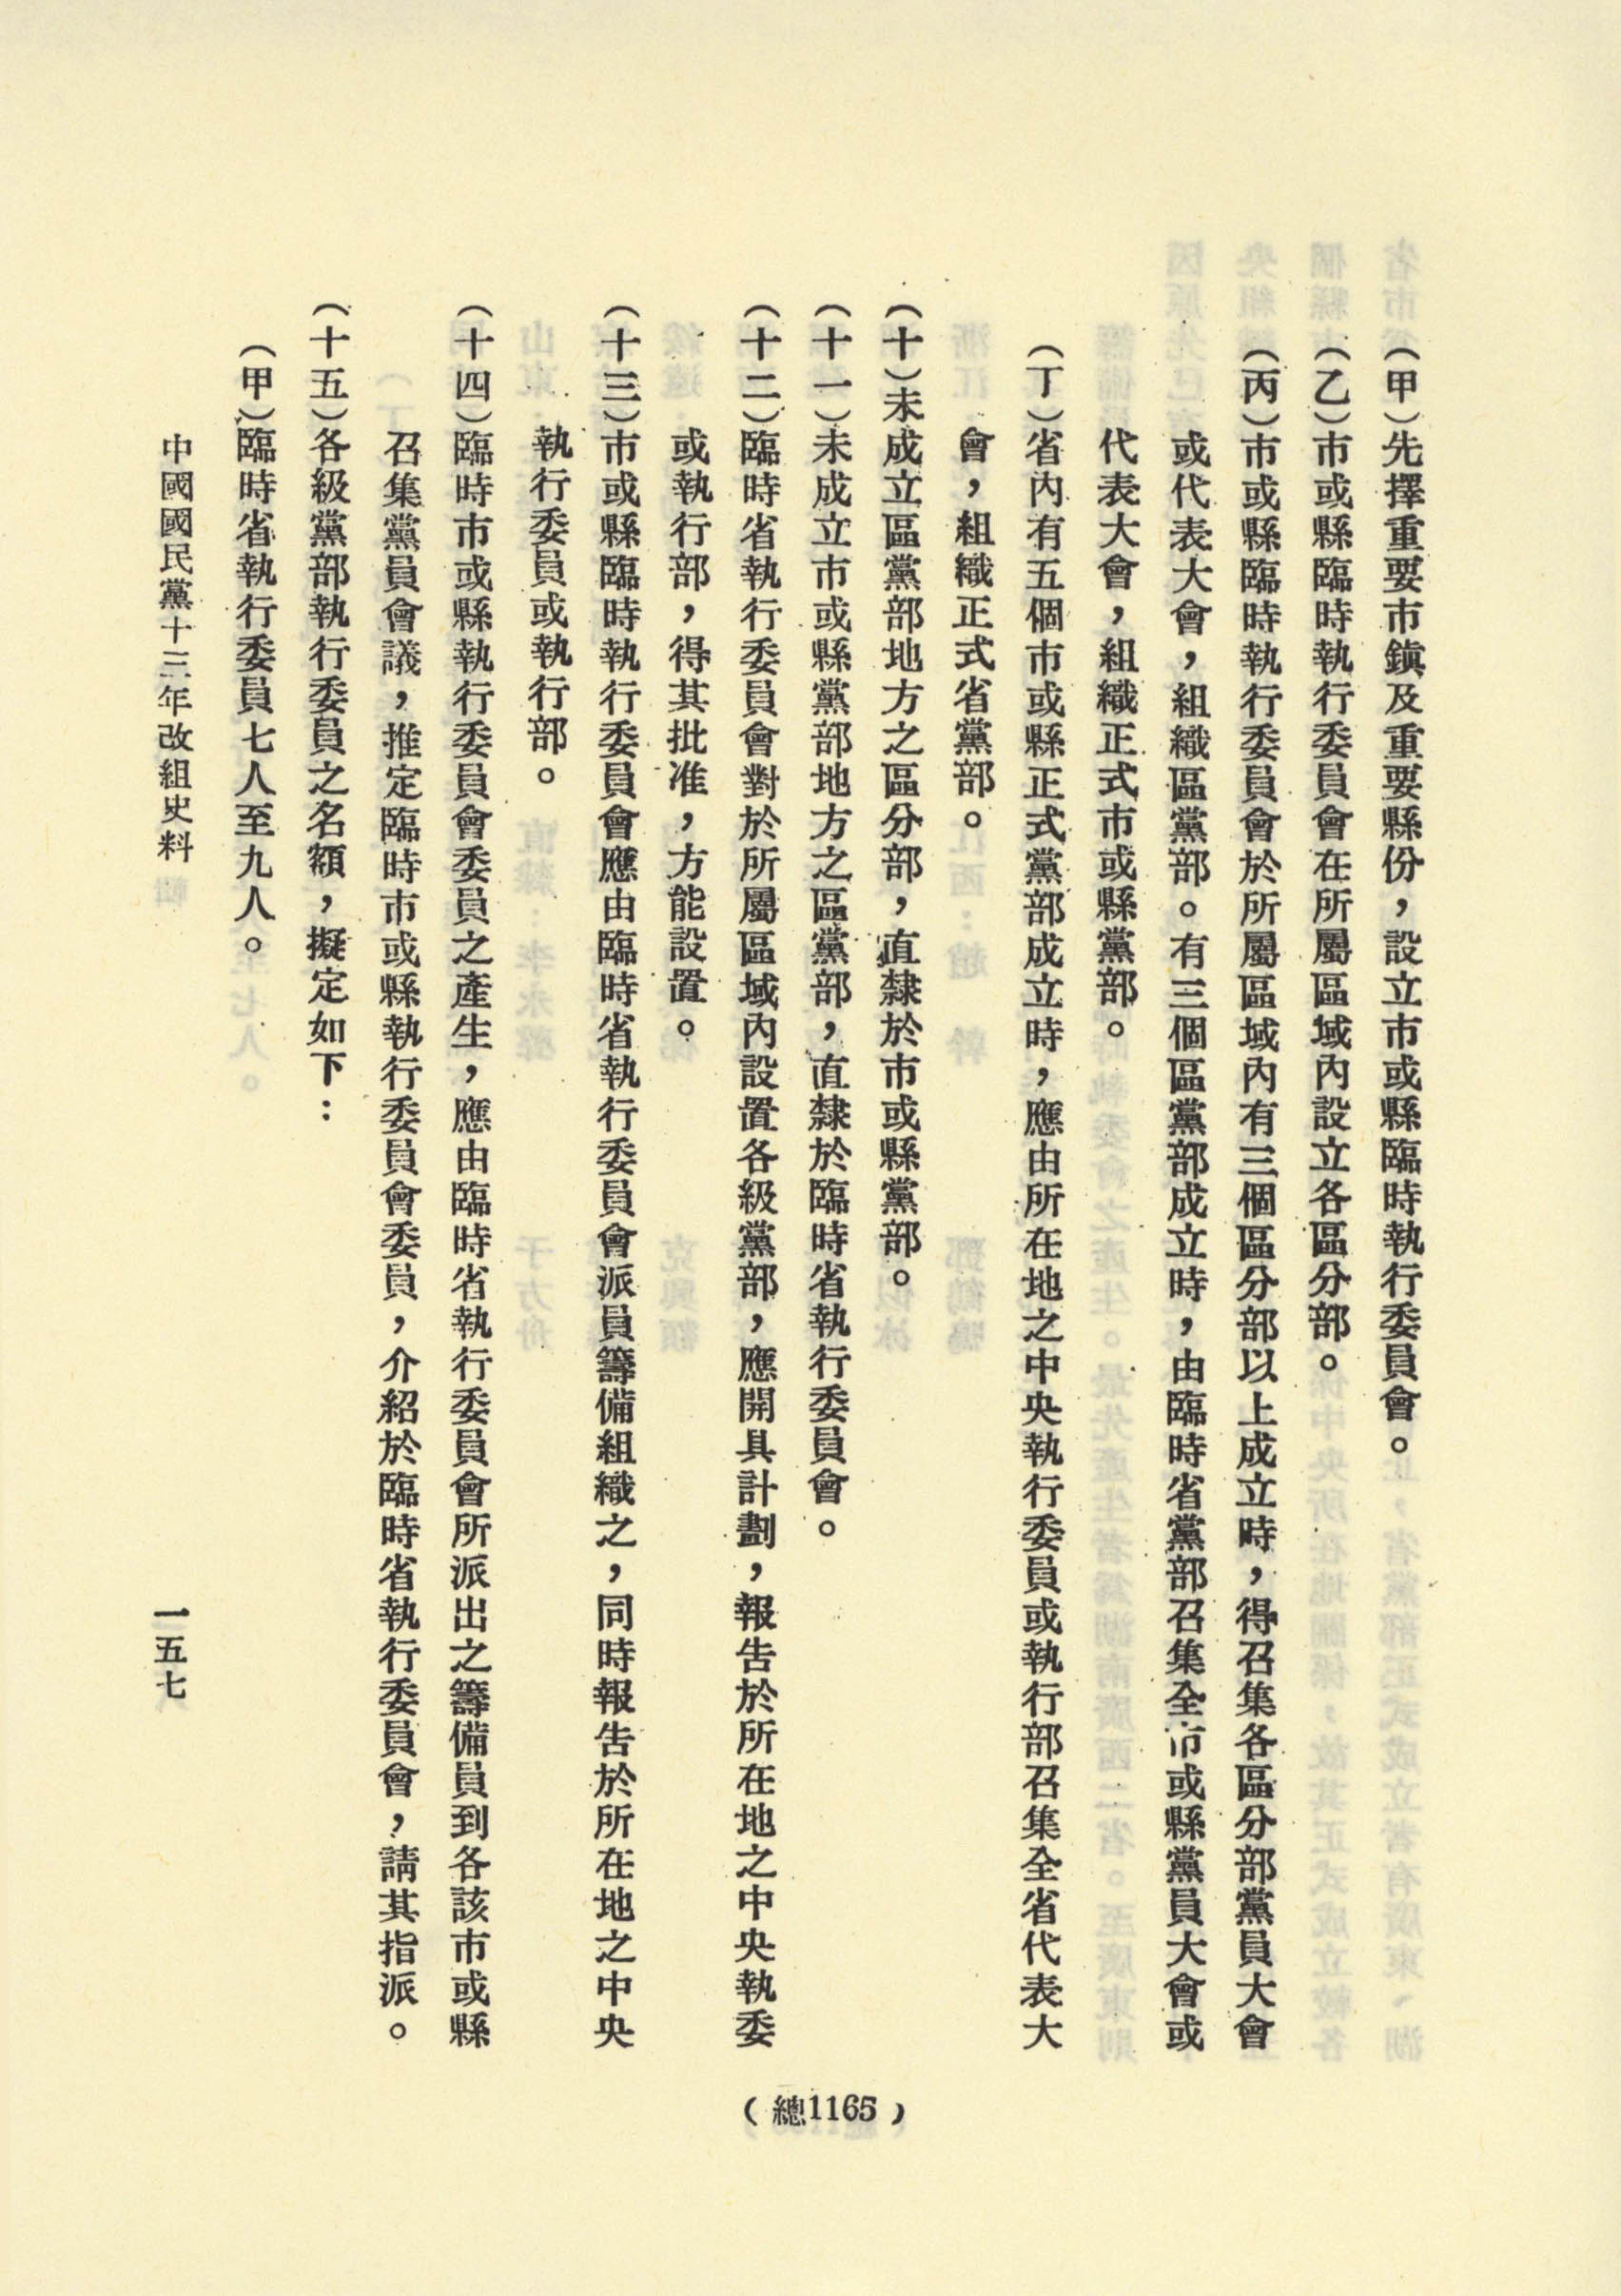 （甲）先擇重要市鎮及重要縣份，設立市或縣臨時執行委員會。
（乙）市或縣臨時執行委員會在所屬區域內設立各區分部。
（丙）市或縣臨時執行委員會於所屬區域內有三個區分部以上成立時，得召集各區分部黨員大會
或代表大會，組織區黨部。有三個區黨部成立時，由臨時省黨部召集全市或縣黨員大會或
代表大會，組織正式市或縣黨部。
（丁）省內有五個市或縣正式黨部成立時，應由所在地之中央執行委員或執行部召集全省代表大
會，組織正式省黨部。
（十）未成立區黨部地方之區分部，直隸於市或縣黨部。
（十一）未成立市或縣黨部地方之區黨部，直隸於臨時省執行委員會。
（十二）臨時省執行委員會對於所屬區域內設置各級黨部，應開具計劃，報告於所在地之中央執委
或執行部，得其批准，方能設置。
（十三）市或縣臨時執行委員會應由臨時省執行委員會派員籌備組織之，同時報告於所在地之中央
執行委員或執行部。
（十四）臨時市或縣執行委員會委員之產生，應由臨時省執行委員會所派出之籌備員到各該市或縣
召集黨員會議，推定臨時市或縣執行委員會委員，介紹於臨時省執行委員會，請其指派。
（十五）各級黨部執行委員之名額，擬定如下：
（甲）臨時省執行委員七人至九人。
中國國民黨十三年改組史料
一五七
（總1165）